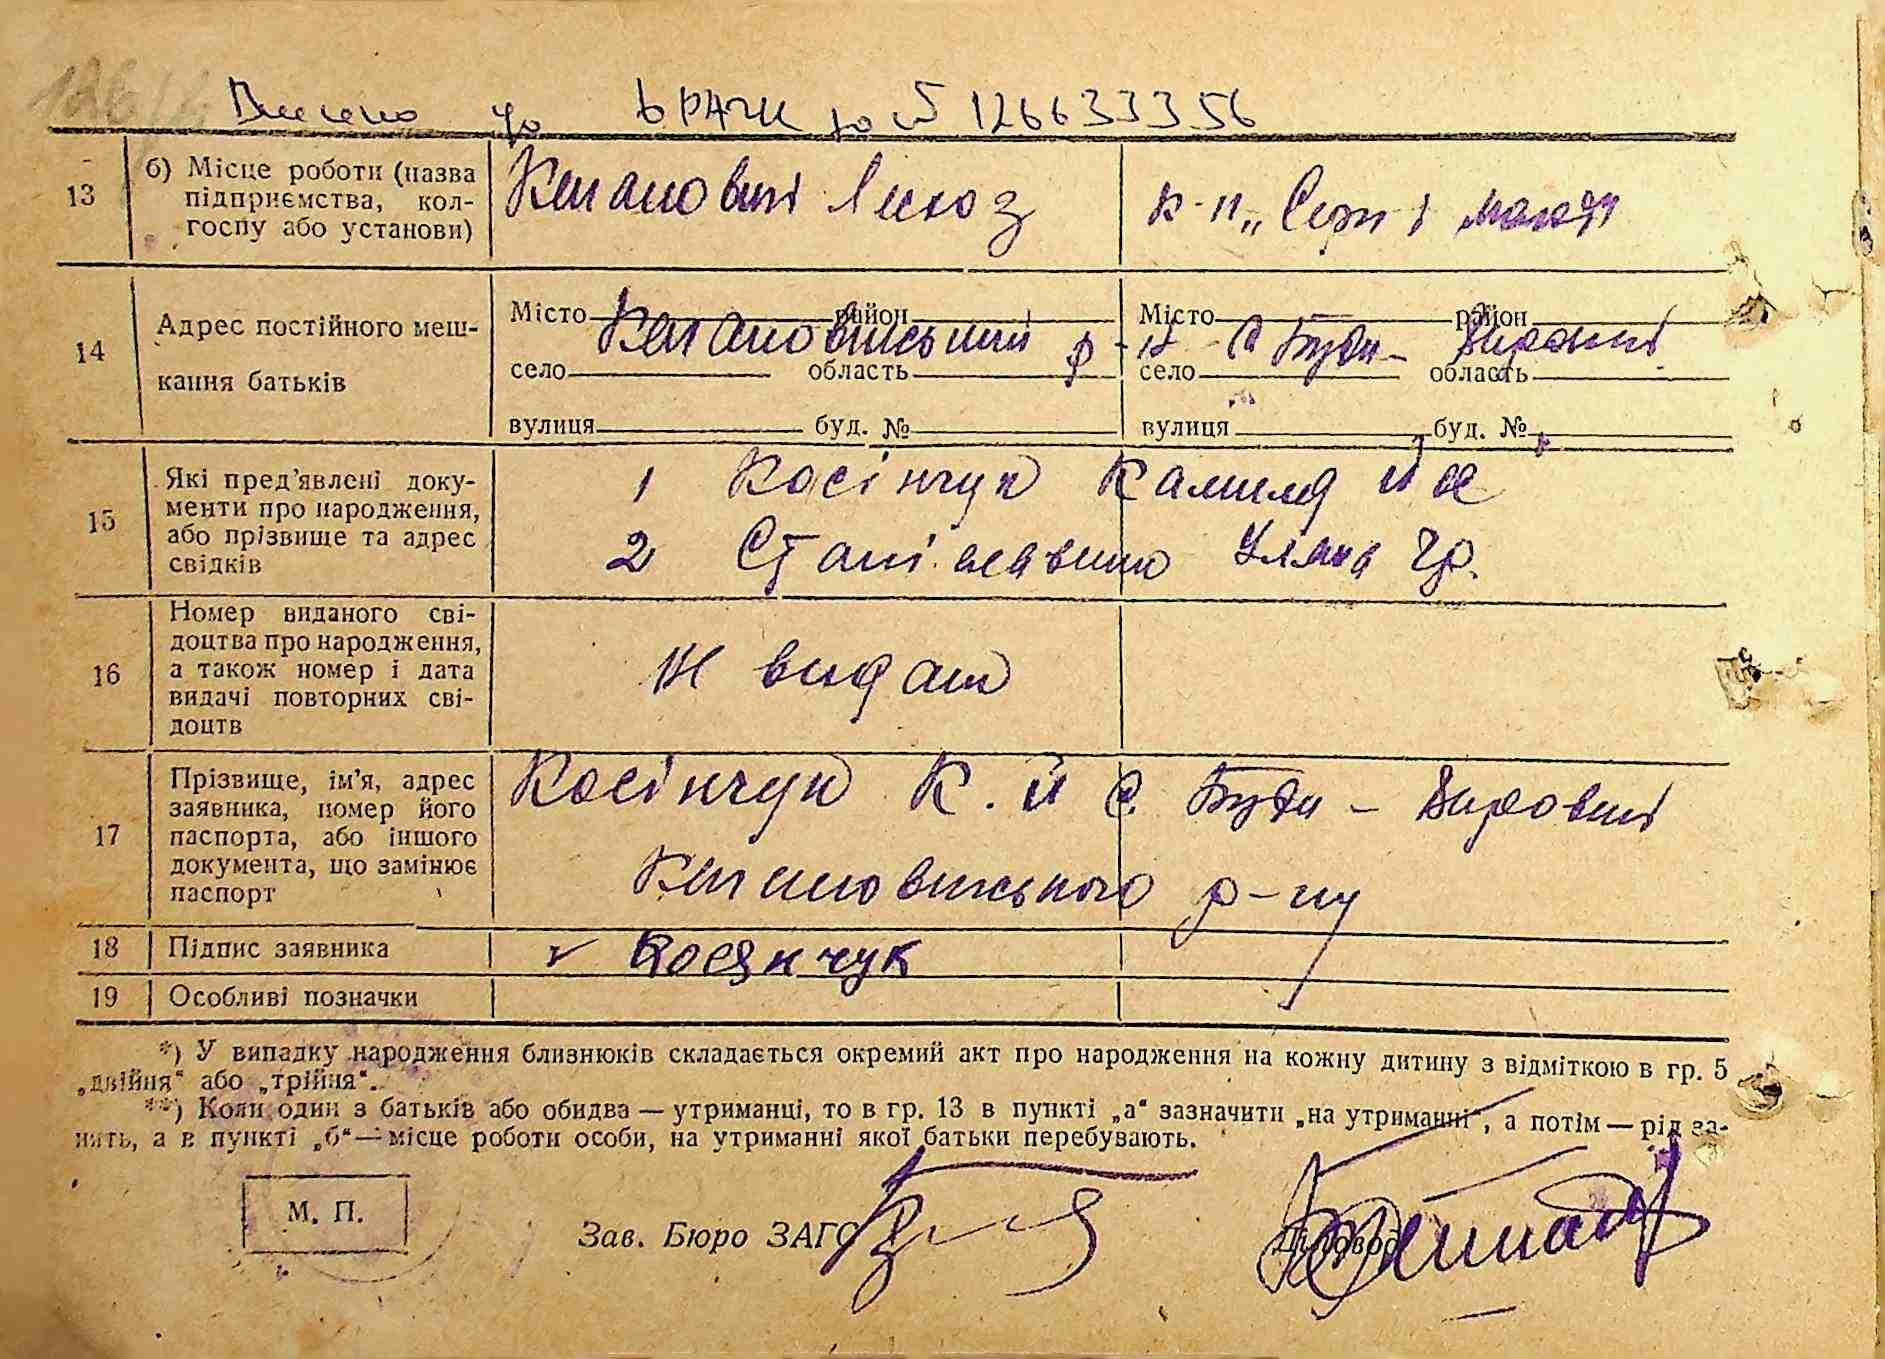 Внесено до ДРАЦС за № 126633356
13 б) Місце роботи (назва підприємства, колгоспу або установи)
Кагановичі
к-п „Серп і молот
14 Адрес постійного мешкання батьків
Місто район Місто район
Кагановицький р-н с Буди- Вировичі
село область село область
вулиця буд. № вулиця буд. №
15 Які пред'явлені документи про народження, або прізвище та адрес свідків
1 Косінчук Каміля Йос
2 Уляна Гр.
16 Номер виданого свідоцтва про народження, а також номер і дата видачі повторних свідоцтв
17 Прізвище, ім'я, адрес заявника, номер його паспорта, або іншого документа, що замінює паспорт
Косінчук К. Й с. Буди –
Кагановицького р-ну
18 Підпис заявника Косянчук
19 Особливі позначки
*) У випадку народження близнюків складається окремий акт про народження на кожну дитину з відміткою в гр. 5
„двійня“ або „трійня“.
**) Коли один з батьків або обидва — утриманці, то в гр. 13 в пункті „а“ зазначити „на утриманні“, а потім — рід за-
нять, а в пункті „б“ — місце роботи особи, на утриманні якої батьки перебувають.
М. П.
Зав. Бюро ЗАГС
Діловод